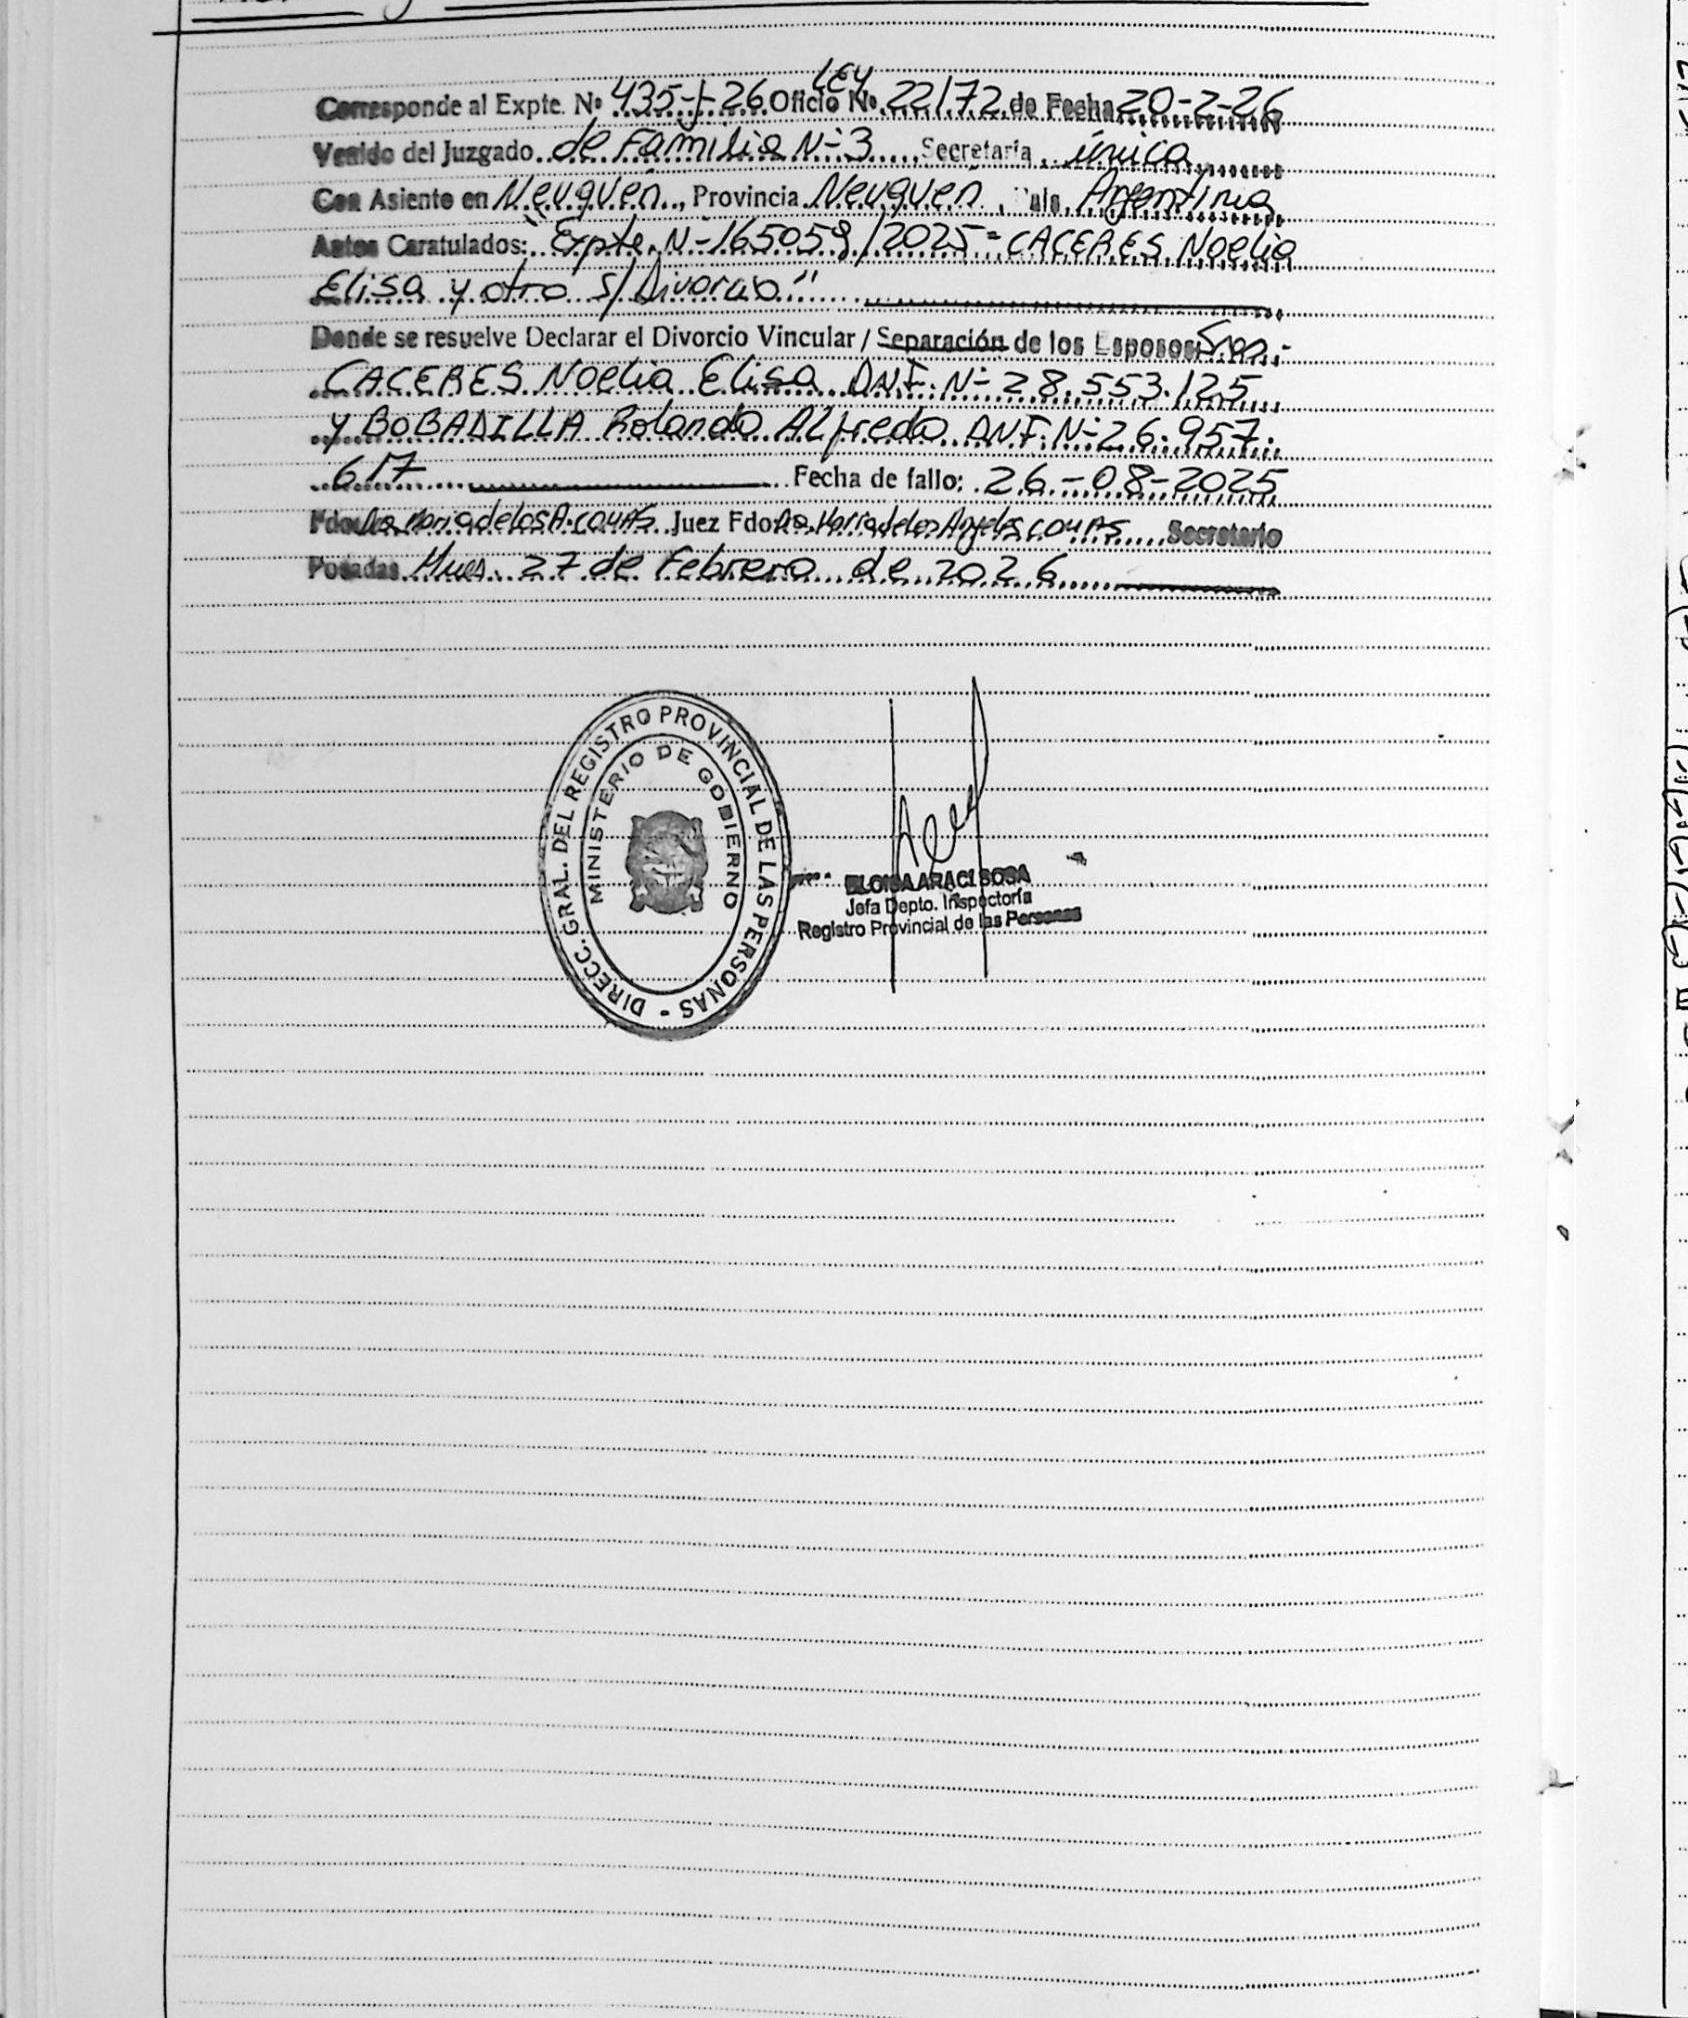 Corresponde al Expte. Nº 435-J-26 Oficio LEY Nº 22172 de Fecha 20-2-26
Venido del Juzgado de Familia Nº 3 Secretaría única
Con Asiento en Neuquén, Provincia Neuquén, País Argentina
Autos Caratulados: "Expte. Nº 165059/2025 = CACERES Noelia
Elisa y otro s/ Divorcio"
Donde se resuelve Declarar el Divorcio Vincular / Separación de los Esposos Sres.-
CACERES Noelia Elisa D.N.I. Nº 28.553.125
y BOBADILLA Rolando Alfredo D.N.I. Nº 26.957.
617 Fecha de fallo: 26-08-2025
Fdo. Dra. Maria de los A. COMAS Juez Fdo. Dra. Maria de los Angeles COMAS Secretario
Posadas Mnes. 27 de Febrero de 2026
DIRECC. GRAL. DEL REGISTRO PROVINCIAL DE LAS PERSONAS -
MINISTERIO DE GOBIERNO
ELOISA ARACI SOSA
Jefa Depto. Inspectoría
Registro Provincial de las Personas